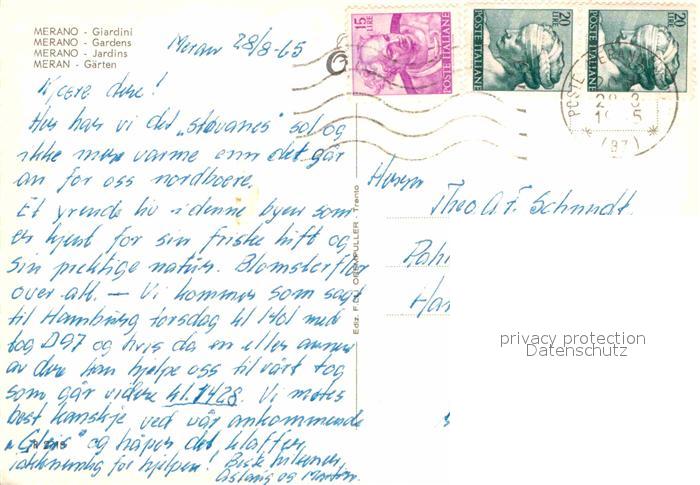 MERANO - Giardini
MERANO - Gardens
MERANO - Jardins
MERAN - Gärten
Meran 28/8-65
15 LIRE
POSTE ITALIANE
20 LIRE
POSTE ITALIANE
20 LIRE
POSTE ITALIANE
POSTE
(BZ)
Kjære dere!
Her har vi det „støvanes" sol og
ikke mere varme enn det går
an for oss nordboere.
Et yrende liv i denne byen som
er kjent for sin friske luft og
sin prektige natur. Blomsterflor
over alt. — Vi kommer som sagt
til Hamburg torsdag kl 1401 med
tog D97 og hvis da en eller annen
av dere kan hjelpe oss til vårt tog
som går videre kl. 1428. Vi møtes
best kanskje ved vår ankommende
„Gleis" og håper det klaffer.
for hjelpen! Beste hilsener
Aslaug og
Herrn
Theo. A. F. Schmidt
Ediz. F.lli OBERPULLER - Trento
privacy protection
Datenschutz